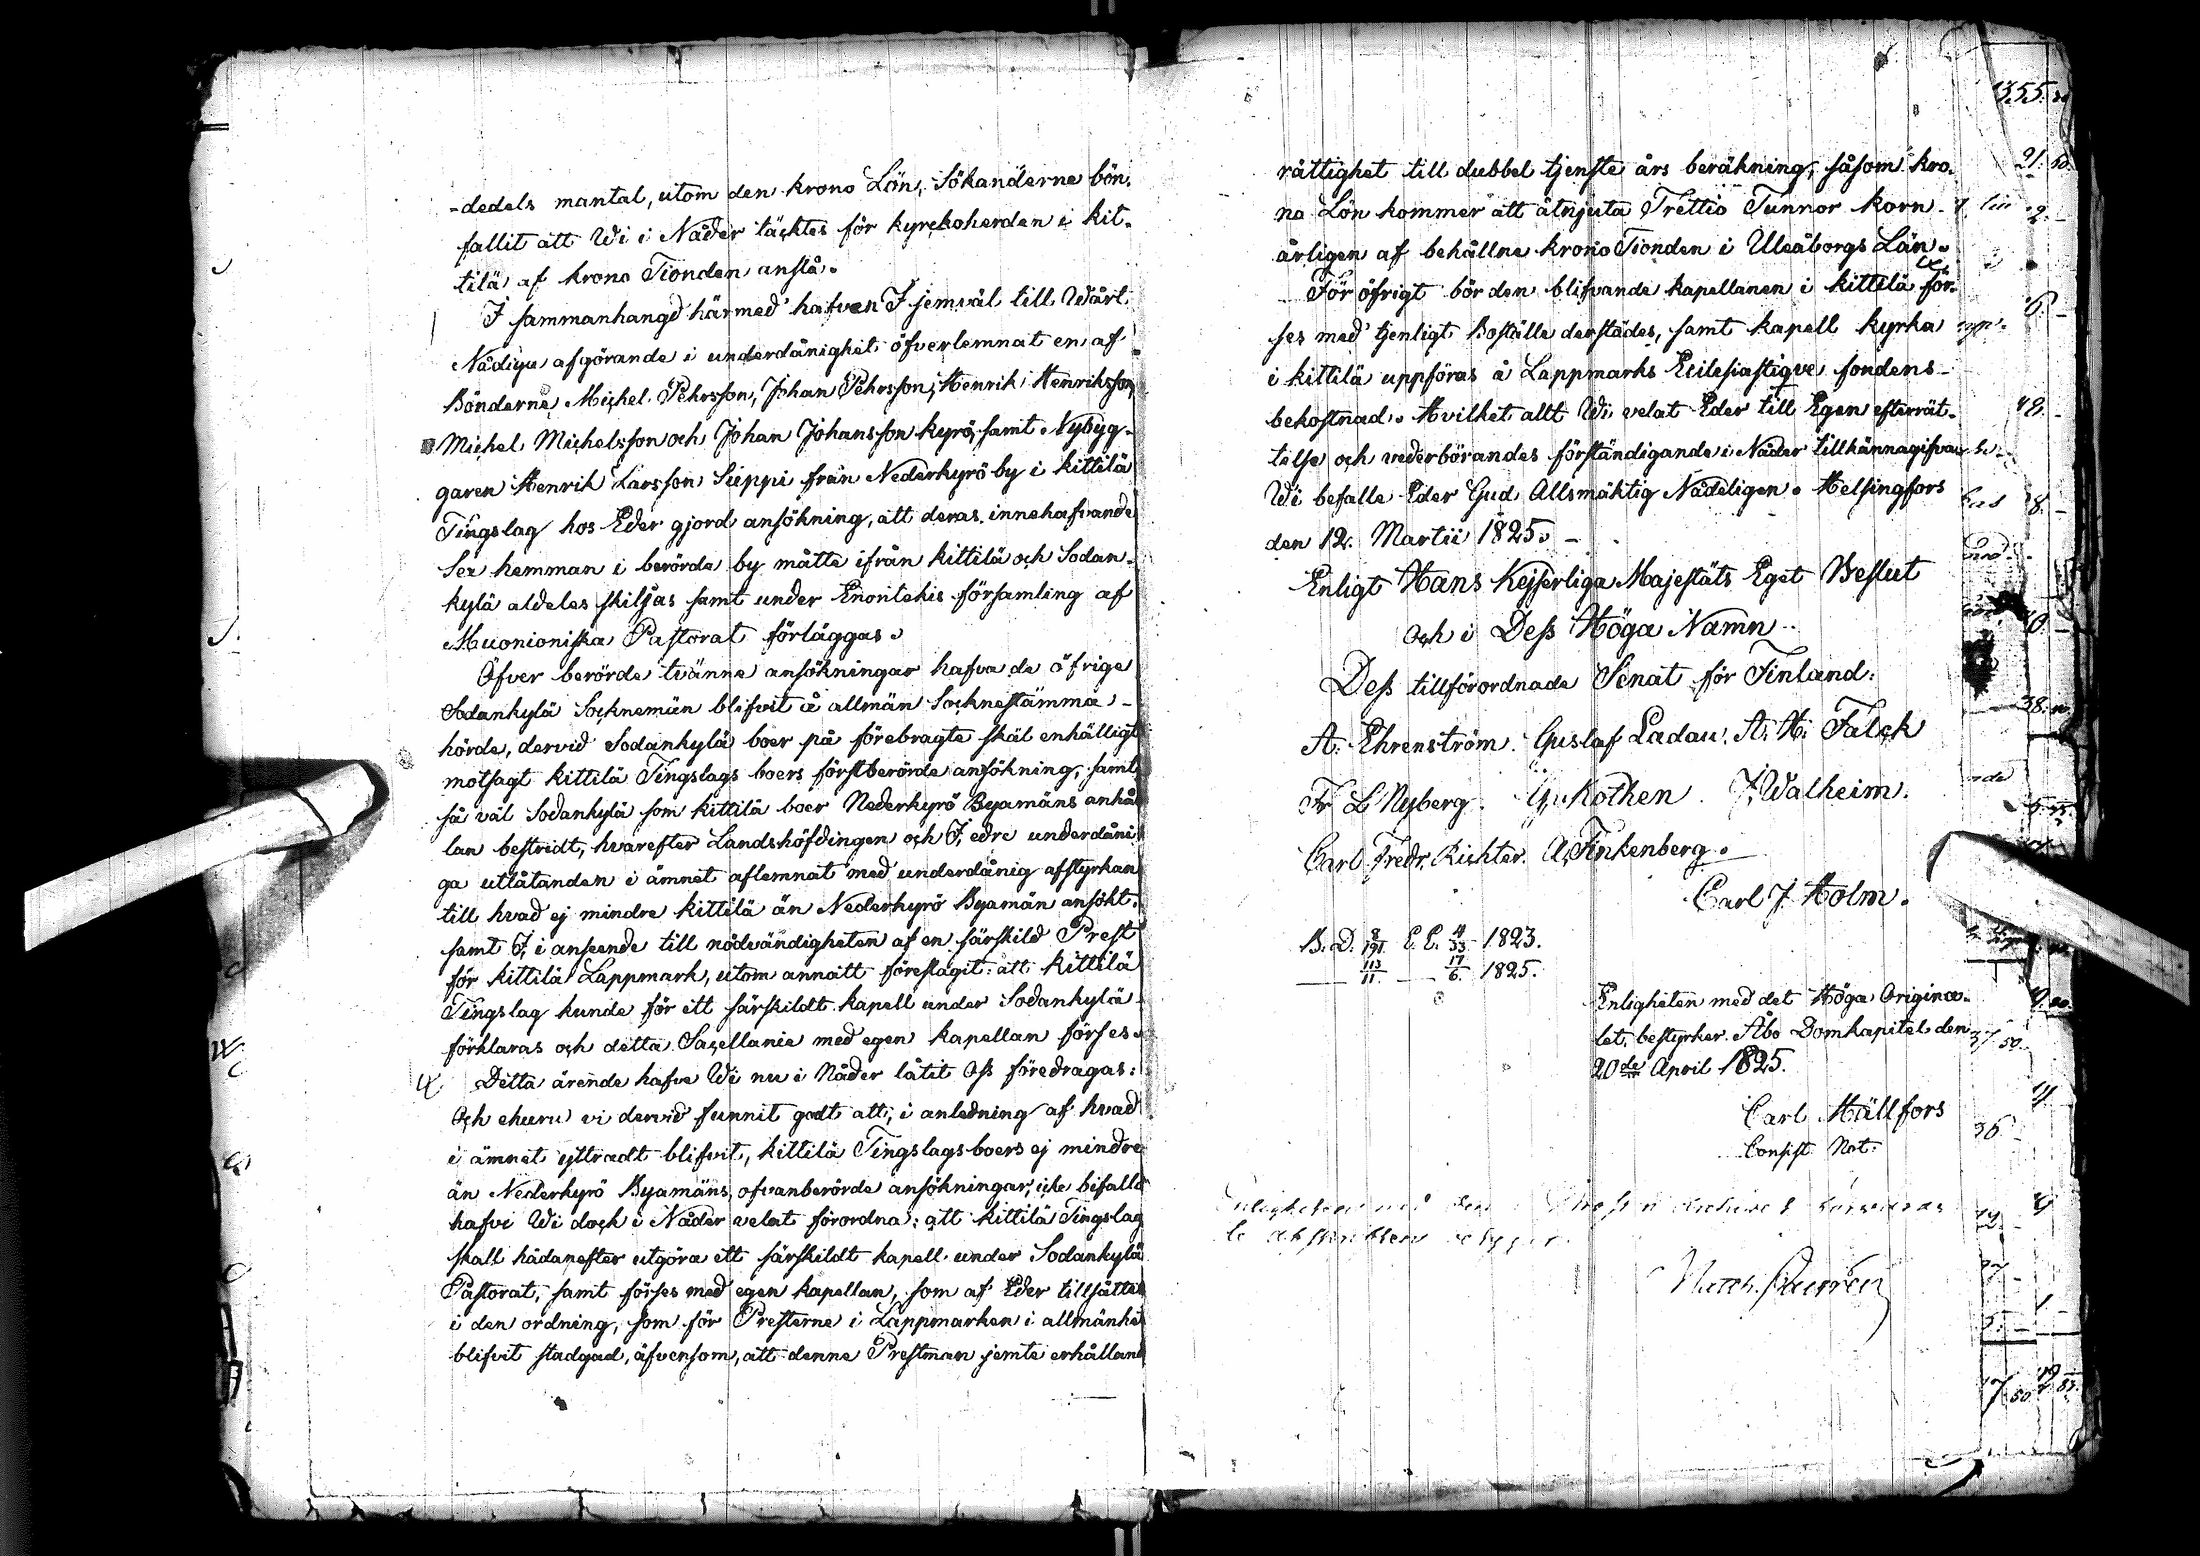 -dedels mantal, utom den krono Lön, Sökanderne bön-
fallit att Wi i Nåder täcktes för kyrckoherden i kit-
tilä af krono Tionden anslå.
I sammanhang härmed hafven I jemväl till Wårt
Nådiga afgörande i underdånighet öfverlemnat en af
Bönderne Michel Pehrsson, Johan Pehrsson, Henrik Henriksson,
Michel Michelsson och Johan Johansson kyrö, samt Nybyg-
garen Henrik Larsson Sieppi från Nederkyrö by i kittilä
Tingslag hos Eder gjord ansökning, att deras innehafvande
Sex hemman i berörde by måtte ifrån kittilä och Sodan-
kylä aldeles skiljas samt under Enontekis församling af
Muonioniska Pastorat förläggas.
Öfver berörde tvänne ansökningar hafva de öfrige
Sodankylä Socknemän blifvit å allmän Socknestämma
hörde, dervid Sodankylä boer på förebragte skäl enhälligt
motsagt kittilä Tingslags boers förstberörde ansökning, samt
så väl Sodankylä som kittilä boer Nederkyrö Byamäns anhål
lan bestridt, hvarefter Landshöfdingen och I, edre underdåni
ga utlåtanden i ämnet aflemnat med underdånig afstyrkan
till hvad ej mindre kittilä än Nederkyrö Byamän ansökt,
samt I, i anseende till nödvändigheten af en särskild Prest
för kittilä Lappmark, utom annatt föreslagit: att kittilä
Tingslag kunde för ett särskildt kapell under Sodankylä
förklaras och detta Sacellanie med egen kapellan förses.
Detta ärende hafve Wi nu i Nåder låtit Oss föredragas:
Och ehuru vi dervid funnit godt att, i anledning af hvad
i ämnet yttradt blifvit, kittilä Tingslagsboers ej mindre
än Nederkyrö Byamäns, ofvanberörde ansökningar, icke bifalla
hafve Wi dock i Nåder velat förordna: att kittilä Tingslag
skall hädanefter utgöra ett särskildt kapell under Sodankylä
Pastorat, samt förses med egen kapellan, som af Eder tillsättes
i den ordning, som för Presterne i Lappmarken i allmänhet
blifvit stadgad, äfvensom, att denne Prestman jemte erhålland
rättighet till dubbel tjenste års beräkning, såsom kro-
no Lön kommer att åtnjuta Trettio Tunnor korn
årligen af behållne krono Tionden i Uleåborgs Län.
För öfrigt bör den blifvande kapellanen i kittilä för-
ses med tjenligt Boställe derstädes, samt kapell kyrka
i kittilä uppföras å Lappmarks Ecclesiastique fondens
bekostnad. Hvilket allt Wi velat Eder till Egen efterrät-
telse och vederbörandes förständigande i Nåder tillkännagifva
Wi befalle Eder Gud Allsmäktig Nådeligen. Helsingfors
den 12. Martii 1825.
Enligt Hans Kejserliga Majestäts Eget Beslut
Och i Dess Höga Namn
Dess tillförordnade Senat för Finland:
A. Ehrenström. Gustaf Ladau. A. H. Falck
Fr. L Nyberg. G. Kothen. J. Walheim.
Carl Fredr. Richter. A. Finkenberg.
Carl J Holm.
B. D. 8/191 E. E. 4/33 1823.
113/11. 17/6. 1825.
Enligheten med det Höga Origina-
let, bestyrker. Åbo Domkapitel den
20de April 1825.
Carl Hällfors
Consist. Not.